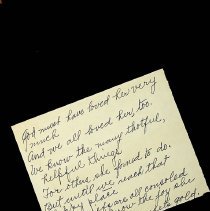 God must have loved her very
much
And we all loved her, too.
We know the many thotful,
helpful things
For others she loved to do.
But until we reach that
place
we are all consoled
know the day she
gold.